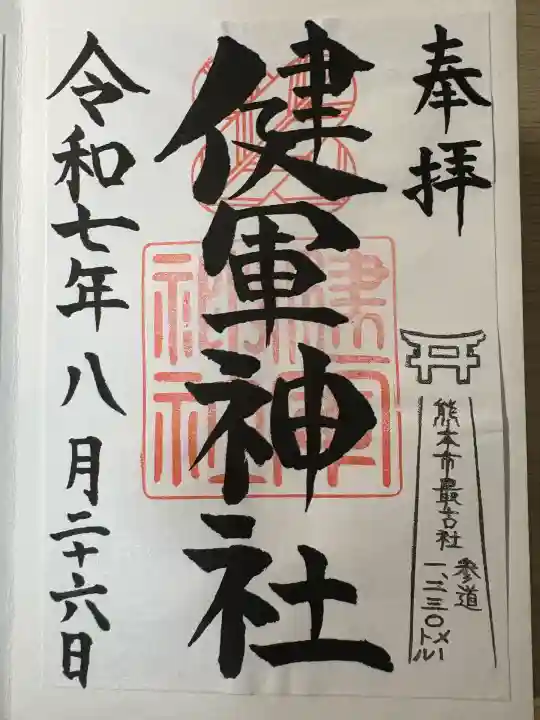 奉拝
熊本市最古社
参道
一、二三〇メートル
健軍神社
健軍神社
令和七年八月二十六日